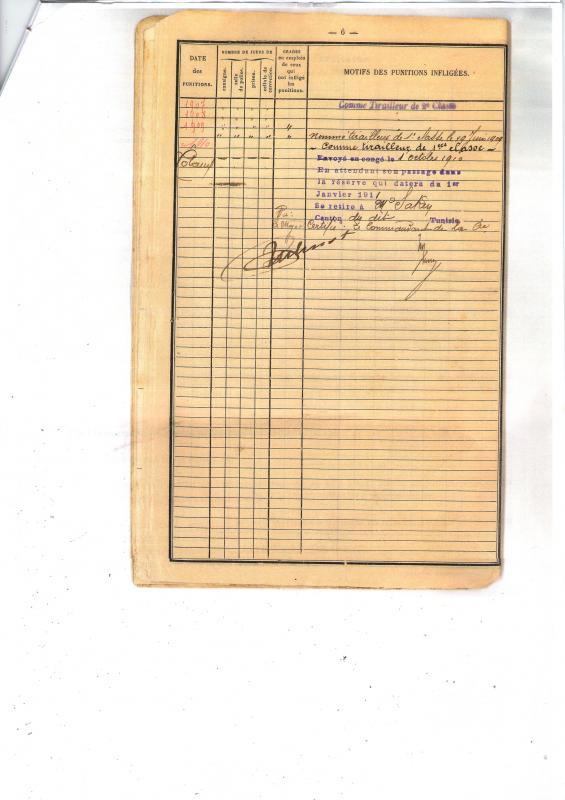 — 6 —
DATE
des
PUNITIONS.
NOMBRE DE JOURS DE
consigne.
salle
de police.
prison.
cellule de
correction.
GRADES
ou emplois
de ceux
qui
ont infligé
les
punitions.
MOTIFS DES PUNITIONS INFLIGÉES.
Comme Tirailleur de 2e Classe
1907 " " " "
1908 " " " "
1909 " " " " "
" " " " " nommé tirailleur de 1re classe le 19 Juin 1909
— Comme tirailleur de 1re Classe —
Envoyé en congé le 1 octobre 1910
En attendant son passage dans
la réserve qui datera du 1er
Janvier 1911
Se retire à
Canton du dit Tunisie
Vu:
Certifié: Le Commandant de la Cie